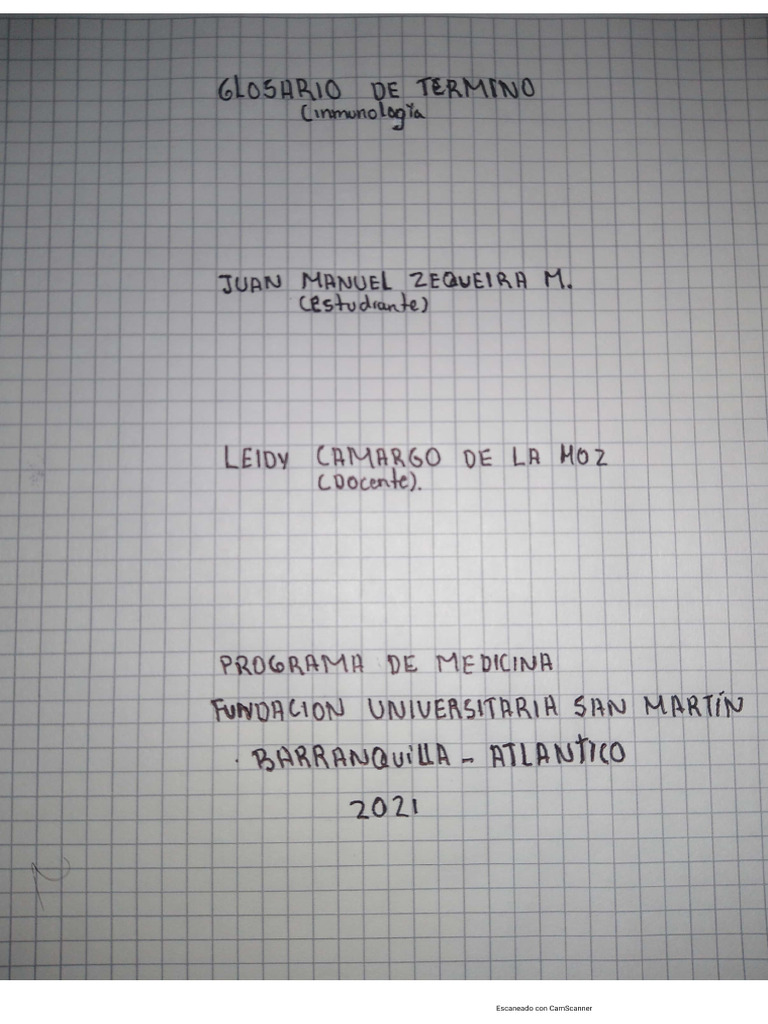 GLOSARIO DE TERMINO
(inmunología
JUAN MANUEL ZEQUEIRA M.
(estudiante)
LEIDY CAMARGO DE LA HOZ
(Docente).
PROGRAMA DE MEDICINA
FUNDACION UNIVERSITARIA SAN MARTÍN
BARRANQUILLA - ATLANTICO
2021
Escaneado con CamScanner